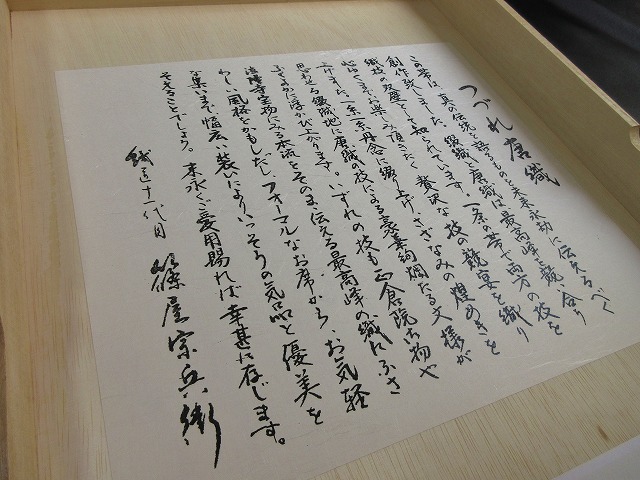 つづれ唐織
この帯は、真の伝統を語るものと未来永劫に伝えるべく
創作致しました。綴織と唐織は最高峰と競い合う
織技の双璧として知られています。一条の帯で両方の技を
心ゆくまでお楽しみ頂きたく、贅沢な技の競宴を織り
上げました。一糸一糸丹念に綴り上げ、さざなみの煌めきを
思わせる綴織地に唐織の技による豪華絢爛たる文様が
ふくよかに浮かび上がります。いずれの技も正倉院御物や
法隆寺宝物にみる本流をそのまま伝える最高峰の織にふさ
わしい風格をかもしだし、フォーマルなお席から、お気軽
な集いまで幅広い装いにより、いっそうの気品と優美を
そえることでしょう。末永くご愛用賜れば幸甚に存じます。
織匠十一代目 篠屋宗兵衛